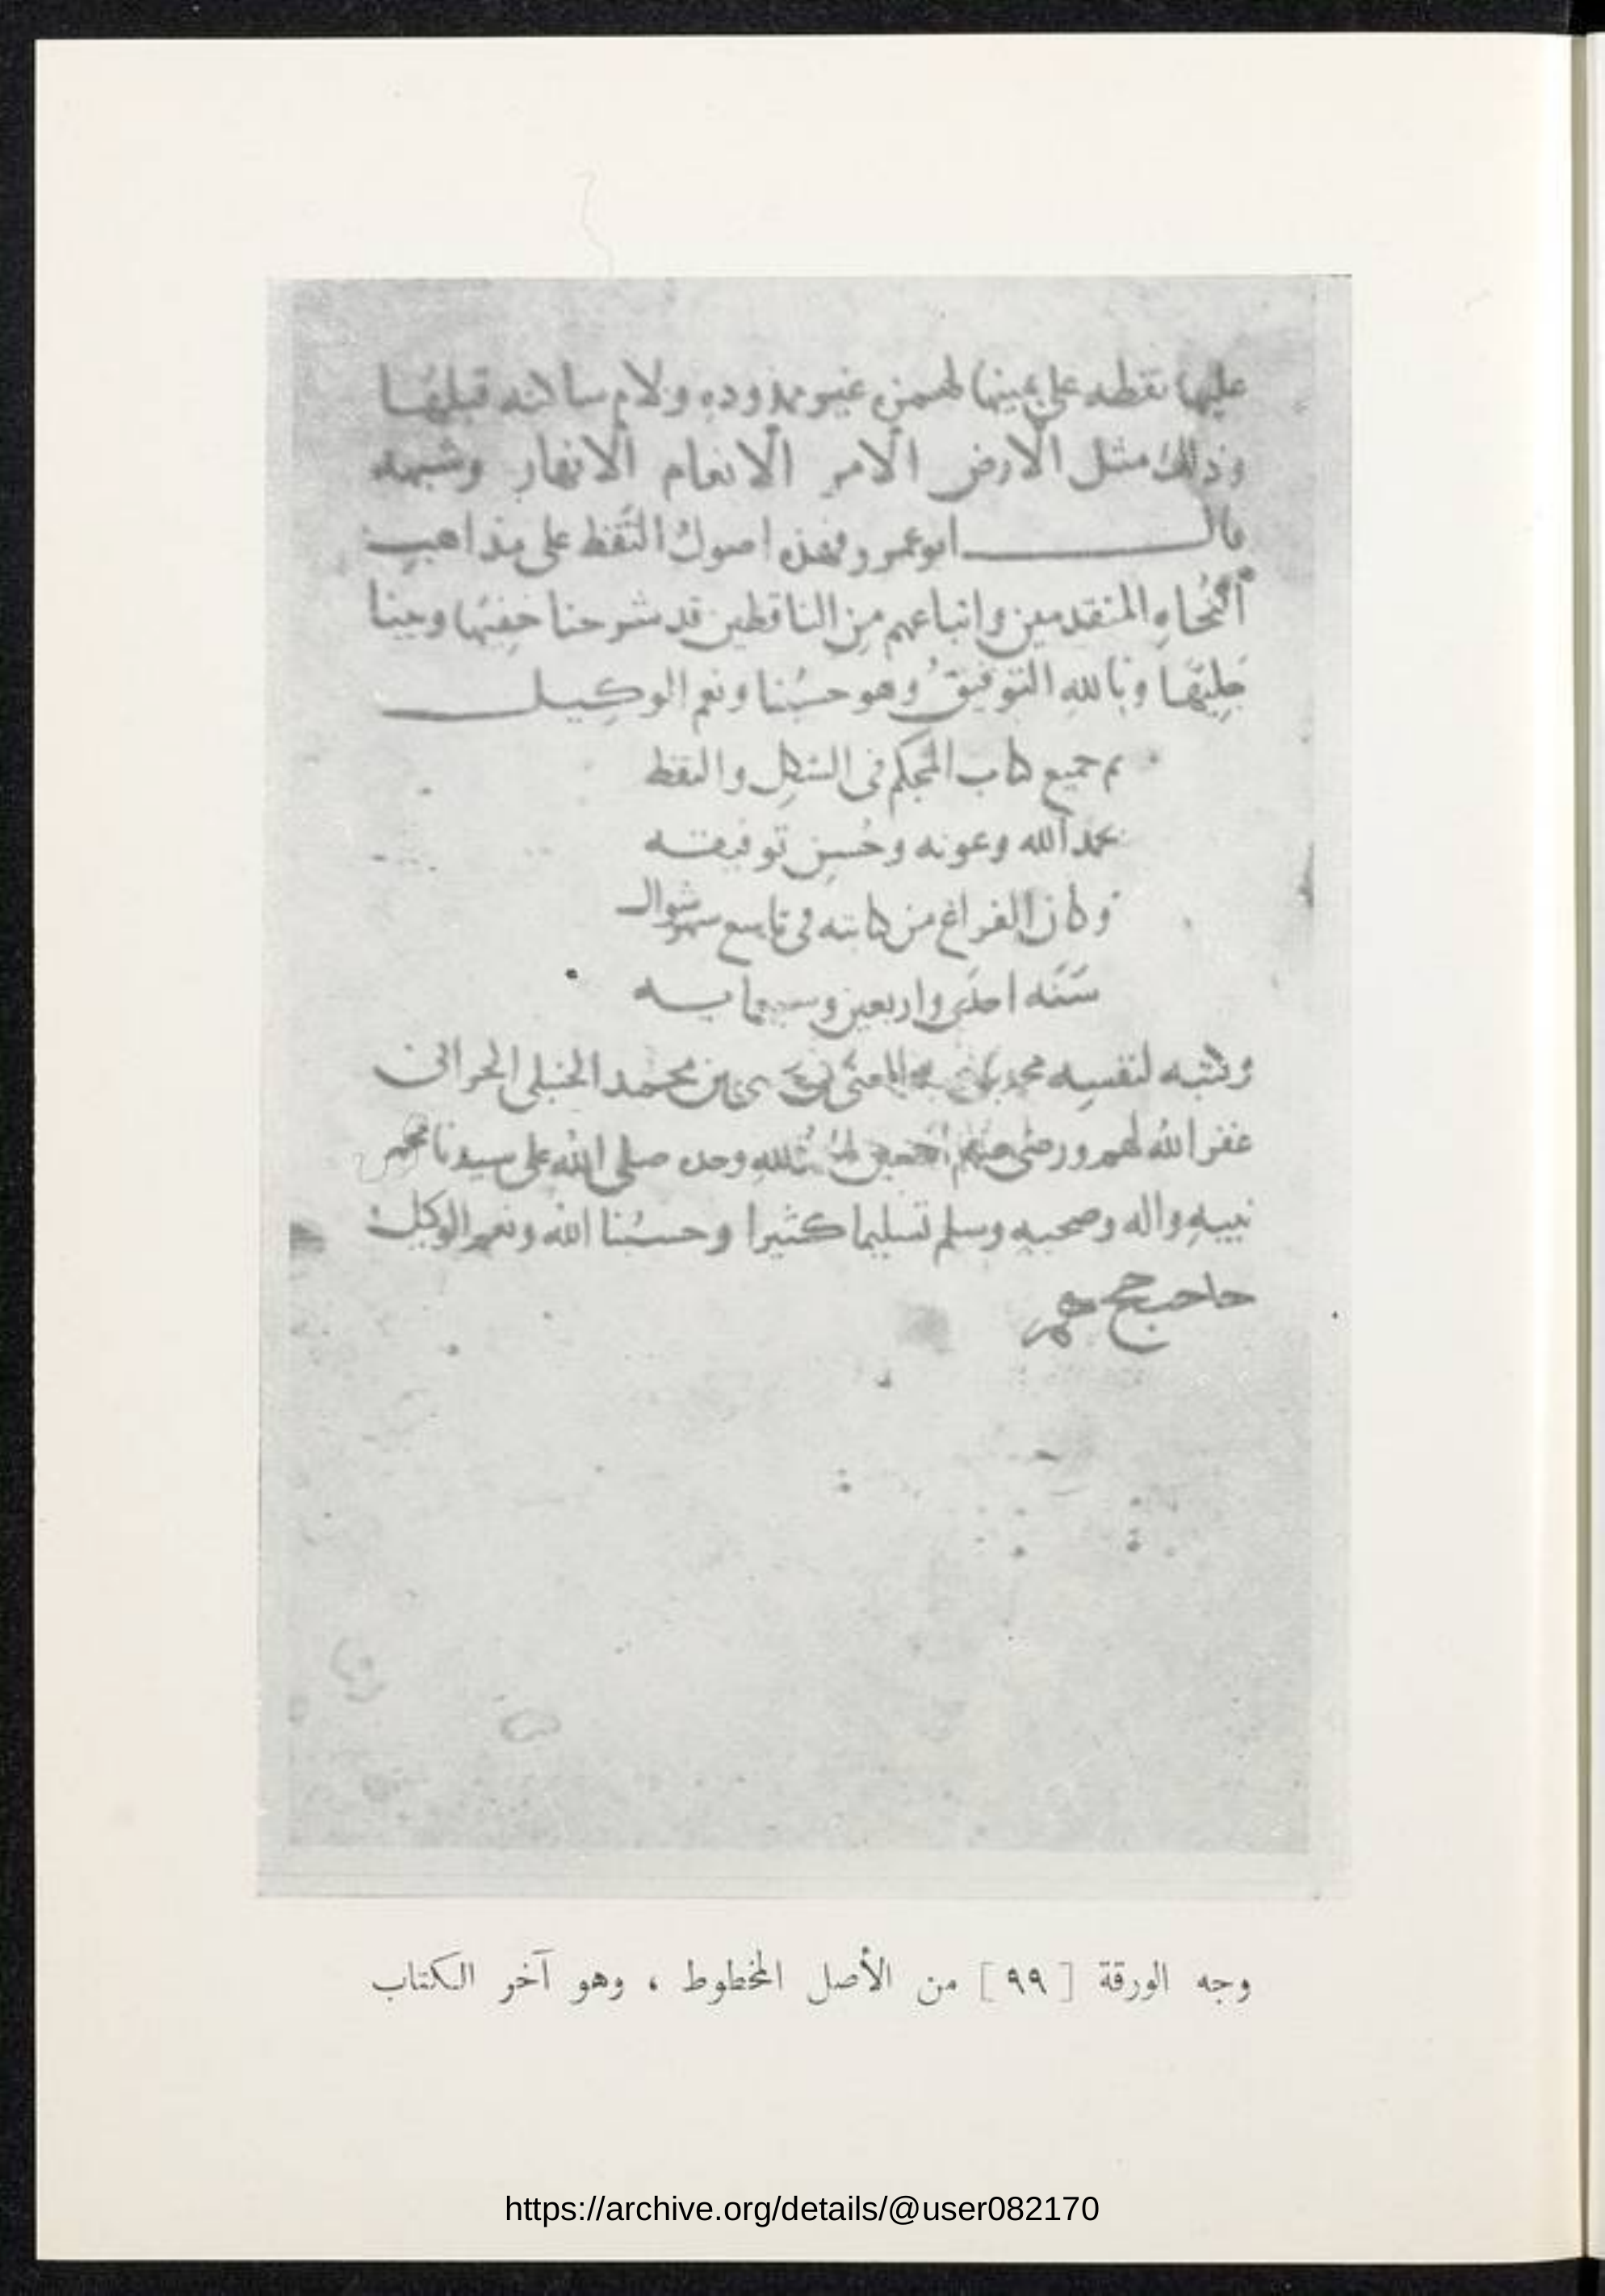 عليها نقطه على يمينها لهمزه غير ممدوده ولام ساكنه قبلها
وذلك مثل الارض الامر الانعام الانهار وشبهه
قال ابو عمرو فهذه اصول النَّقط على مذاهب
النُّحاهِ المتقدمين واتباعهم من الناقطين قد شرحنا خفيّها وبينا
جَلِيَّها وبالله التوفيقُ وهو حسبُنا ونعم الوكيل
تم جميع كتاب المُحكم في الشكل والنقط
بحمد الله وعونه وحُسنِ توفيقه
وكان الفراغ من كتابته في تاسع شهر شوال
سَنَه احدى واربعين وسبعمايه
وكتبه لنفسه محمد بن محمد الحنبلي الحراني
غفر الله لهم ورضي عنهم أجمعين لله وحده صلى الله على سيدنا محمد
نبيه واله وصحبه وسلم تسليما كثيرا وحسبُنا الله ونعم الوكيل
وجه الورقة [ ٩٩ ] من الأصل المخطوط ، وهو آخر الكتاب
https://archive.org/details/@user082170